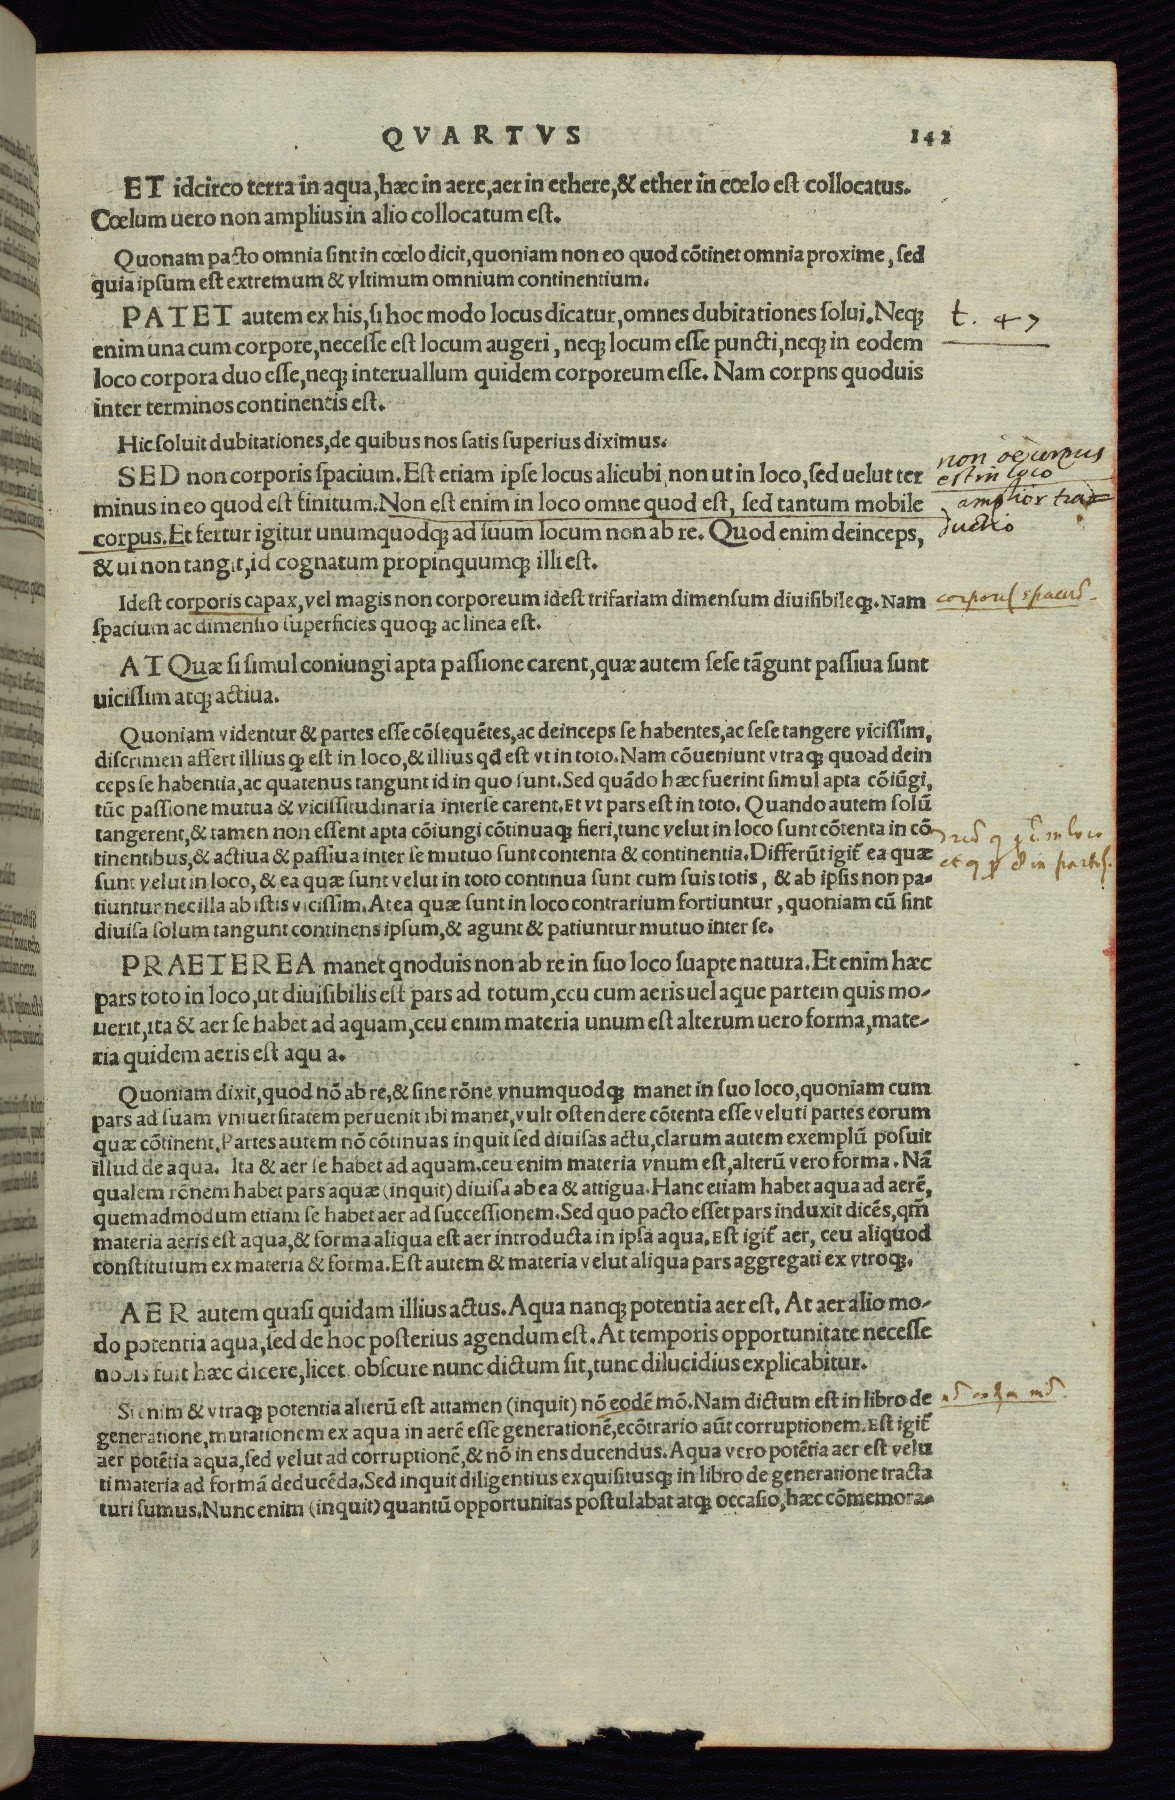 QVARTVS 142
ET idcirco terra in aqua, hæc in aere, aer in ethere, & ether in cœlo est collocatus.
Cœlum uero non amplius in alio collocatum est.
Quonam pacto omnia sint in cœlo dicit, quoniam non eo quod cõtinet omnia proxime, sed
quia ipsum est extremum & vltimum omnium continentium.
PATET autem ex his, si hoc modo locus dicatur, omnes dubitationes solui. Neqꝫ
t. 47
enim una cum corpore, necesse est locum augeri, neqꝫ locum esse puncti, neqꝫ in eodem
loco corpora duo esse, neqꝫ interuallum quidem corporeum esse. Nam corpns quoduis
inter terminos continentis est.
Hic soluit dubitationes, de quibus nos satis superius diximus.
SED non corporis spacium. Est etiam ipse locus alicubi, non ut in loco, sed uelut ter
non oē corpus
est in loco
minus in eo quod est finitum. Non est enim in loco omne quod est, sed tantum mobile
amplior tra=
ductio
corpus. Et fertur igitur unumquodqꝫ ad suum locum non ab re. Quod enim deinceps,
& ui non tangit, id cognatum propinquumqꝫ illi est.
Idest corporis capax, vel magis non corporeum idest trifariam dimensum diuisibileqꝫ. Nam
corporis spaciũ.
spacium ac dimensio superficies quoqꝫ ac linea est.
AT Quæ si simul coniungi apta passione carent, quæ autem sese tãgunt passiua sunt
uicissim atqꝫ actiua.
Quoniam videntur & partes esse cõsequẽtes, ac deinceps se habentes, ac sese tangere vicissim,
discrimen affert illius qꝫ est in loco, & illius qđ est vt in toto. Nam cõueniunt vtraqꝫ quoad dein
ceps se habentia, ac quatenus tangunt id in quo sunt. Sed quãdo hæc fuerint simul apta cõiũgi,
tũc passione mutua & vicissitudinaria inter se carent. Et vt pars est in toto. Quando autem solũ
tangerent, & tamen non essent apta cõiungi cõtinuaqꝫ fieri, tunc velut in loco sunt cõtenta in cõ
tinentibus, & actiua & passiua inter se mutuo sunt contenta & continentia. Differũt igit̃ ea quæ
sunt velut in loco, & ea quæ sunt velut in toto continua sunt cum suis totis, & ab ipsis non pa-
tiuntur nec illa ab istis vicissim. At ea quæ sunt in loco contrarium fortiuntur, quoniam cũ sint
diuisa solum tangunt continens ipsum, & agunt & patiuntur mutuo inter se.
PRAETEREA manet qnoduis non ab re in suo loco suapte natura. Et enim hæc
pars toto in loco, ut diuisibilis est pars ad totum, ceu cum aeris uel aque partem quis mo-
uerit, ita & aer se habet ad aquam, ceu enim materia unum est alterum uero forma, mate-
ria quidem aeris est aqu a.
Quoniam dixit, quod nõ ab re, & sine rõne vnumquodqꝫ manet in suo loco, quoniam cum
pars ad suam vniuersitatem peruenit ibi manet, vult ostendere cõtenta esse veluti partes eorum
quæ cõtinent. Partes autem nõ cõtinuas inquit sed diuisas actu, clarum autem exemplũ posuit
illud de aqua. Ita & aer se habet ad aquam. ceu enim materia vnum est, alterũ vero forma. Nã
qualem rõnem habet pars aquæ (inquit) diuisa ab ea & attigua. Hanc etiam habet aqua ad aerẽ,
quemadmodum etiam se habet aer ad successionem. Sed quo pacto esset pars induxit dicẽs, qm̃
materia aeris est aqua, & forma aliqua est aer introducta in ipsa aqua. Est igit̃ aer, ceu aliquod
constitutum ex materia & forma. Est autem & materia velut aliqua pars aggregati ex vtroqꝫ.
AER autem quasi quidam illius actus. Aqua nanqꝫ potentia aer est. At aer alio mo-
do potentia aqua, sed de hoc posterius agendum est. At temporis opportunitate necesse
nobis fuit hæc dicere, licet obscure nunc dictum sit, tunc dilucidius explicabitur.
Si enim & vtraqꝫ potentia alterũ est attamen (inquit) nõ eodẽ mõ. Nam dictum est in libro de
generatione, mutationem ex aqua in aerẽ esse generationẽ, ecõtrario aũt corruptionem. Est igit̃
aer potẽtia aqua, sed velut ad corruptionẽ, & nõ in ens ducendus. Aqua vero potẽtia aer est velu
ti materia ad formã deducẽda. Sed inquit diligentius exquisitusqꝫ in libro de generatione tracta
turi sumus. Nunc enim (inquit) quantũ opportunitas postulabat atqꝫ occasio, hæc cõmemora-